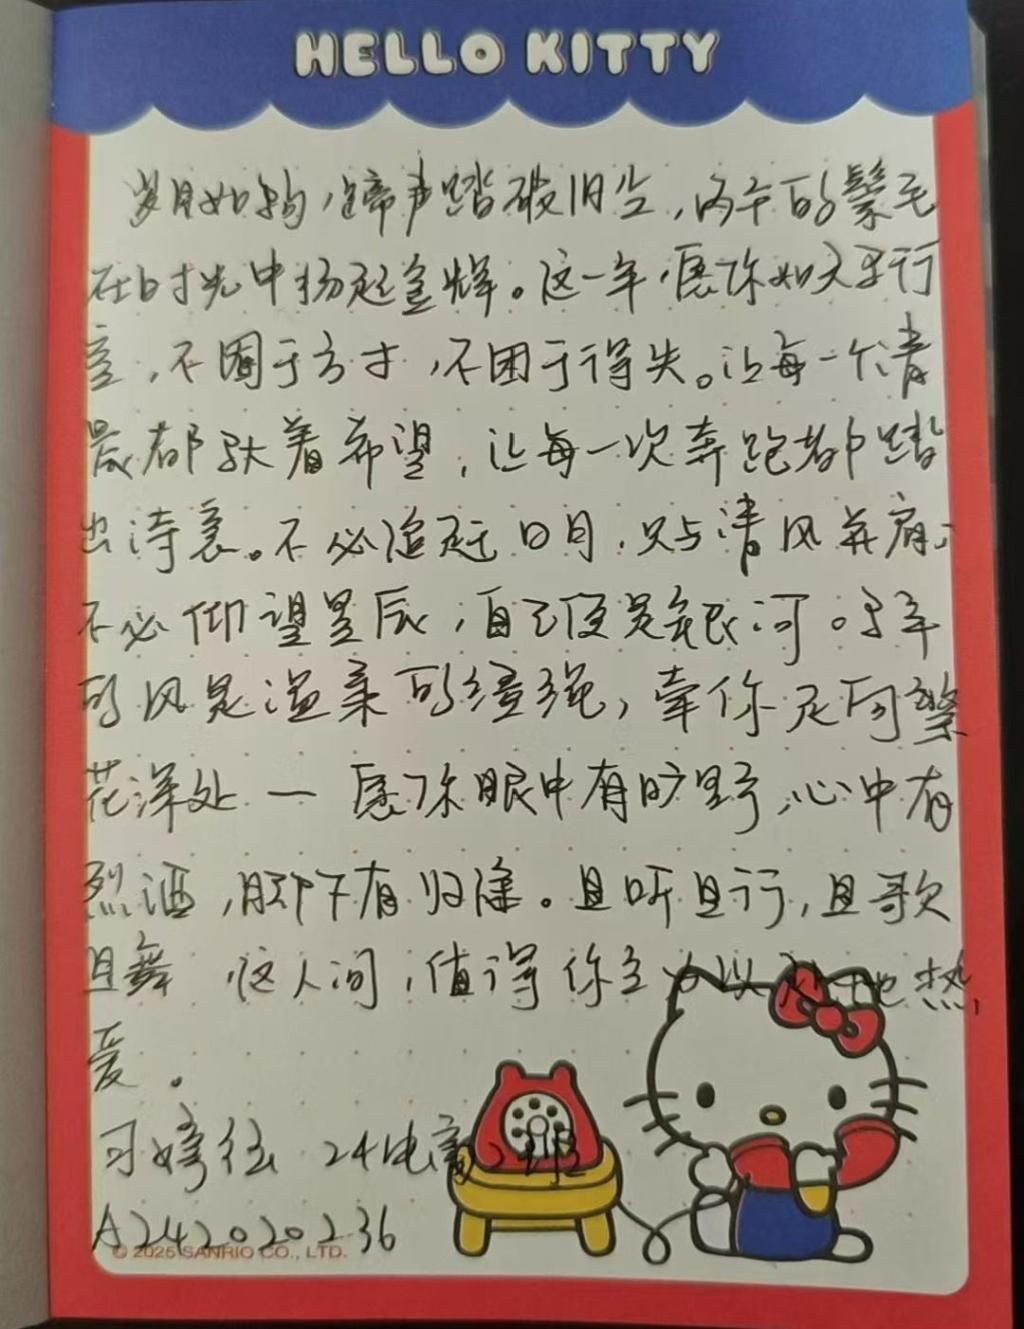 HELLO KITTY
岁月如驹，蹄声踏破旧尘，丙午的鬃毛
在时光中扬起金辉。这一年，愿你如天马行
空，不囿于方寸，不困于得失。让每一个清
晨都驮着希望，让每一次奔跑都踏
出诗意。不必追赶日月，只与清风并肩；
不必仰望星辰，自己便是银河。马年
的风是温柔的缰绳，牵你走向繁
花深处 — 愿你眼中有旷野，心中有
烈酒，脚下有归途。且听且行，且歌
且舞 这人间，值得你全力以赴地热
爱。
24电商2班
A242020236
© 2025 SANRIO CO., LTD.